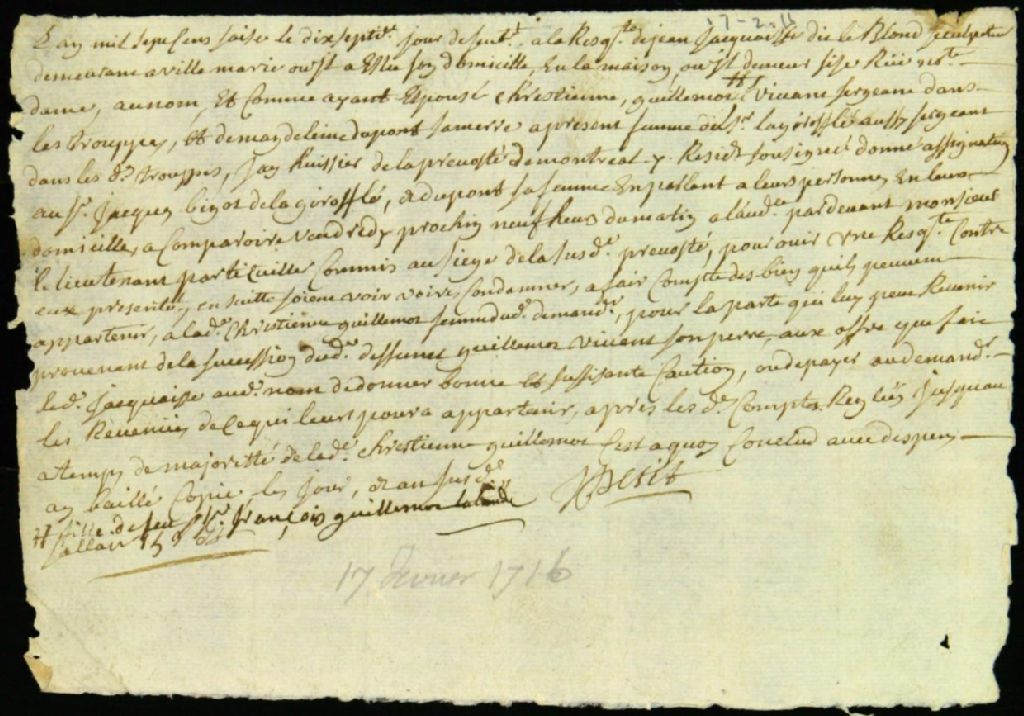 17-2-16
L'an mil sept cens saise le dix septie. jour de feu.r a la Resq.te de jean Jacquaisse dit le Blond sculpteur
demeurant a ville marie ou Jl a Eslu son domicille, En la maison, ou st demeur
dame, au nom, Et Comme ayant Espousé Chrestienne, guillemot # vivant sergeant dans
les trouppes, Et de magdeleine dupont sa merre a present femme du Sr. lagirofflé aussy sergeant
dans les d. trouppes, J'ay huissier de la prevosté de montreal y Resid.t soussigné donné assignation
au Sr. Jacques bigot de la girofflé, et dupont sa femme En parlant a leurs personnes En leurs
domicilles a Comparoire vendredy prochin neuf heurs du matin a l'aud.ce pardevant monsieur
le lieutenant particuillier Commis au siege de la susd.e prevosté, pour ouir une Resq.te Contre
eux presentée, en suitte soient voir voire Condamner, a fair Compte des bien quils peuvent
appartenir, a lad.e Chrestienne guillemot femme dud. demand.r, pour la parte qui luy peut Revenir
provenant de la sucession dud. deffunct guillemot vivant son perre, aux offre que fait
led. Jacquaisse aud. nom de donner bonne Et suffisante Caution, ou de payer au demand.r
les Revenües de ce qui leurs poura appartenir, après les d. Comptes Regléz Jusquau
a temps de majoritté de lad.e Chrestienne guillemot Cest a quoy Conclud avec despens
ay baillé Copie les jour, et an susd.
Petit
# fille de feu Sr. françois guillemot lalande
17 fevrier 1716